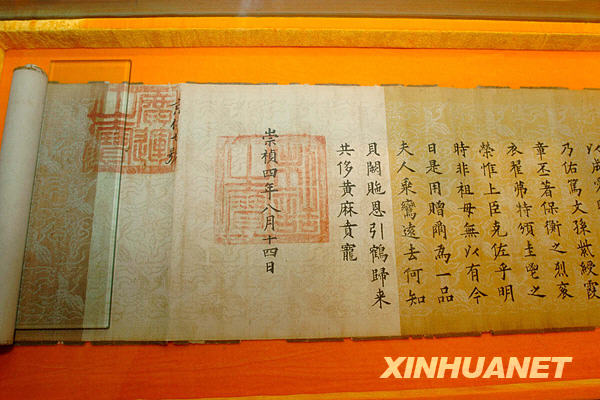 乃佑篤文孫紫綬霞
章丕著保衡之烈袞
衣翟茀特頒圭鬯之
榮惟上臣克佐乎明
時非祖母無以有今
日是用贈爾為一品
夫人乘鸞遠去何知
貝闕貤恩引鶴歸来
共侈黃麻賁寵
崇禎四年八月十四日
制誥之寶
廣運之寶
XINHUANET